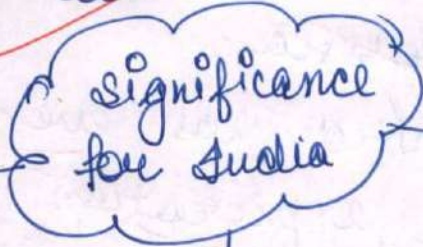 Significance
for India